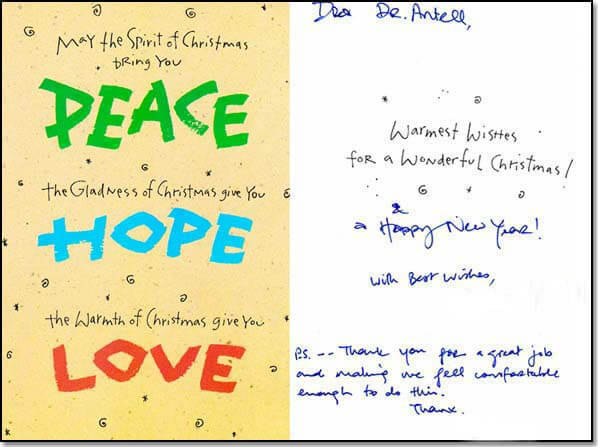 May the Spirit of Christmas
bring You
PEACE
the Gladness of Christmas give You
HOPE
the Warmth of Christmas give You
LOVE
Dear Dr. Antell,
Warmest Wishes
for a Wonderful Christmas!
& a Happy New Year!
With Best Wishes,
P.S. -- Thank you for a great job
and making me feel comfortable
enough to do this.
Thanx.